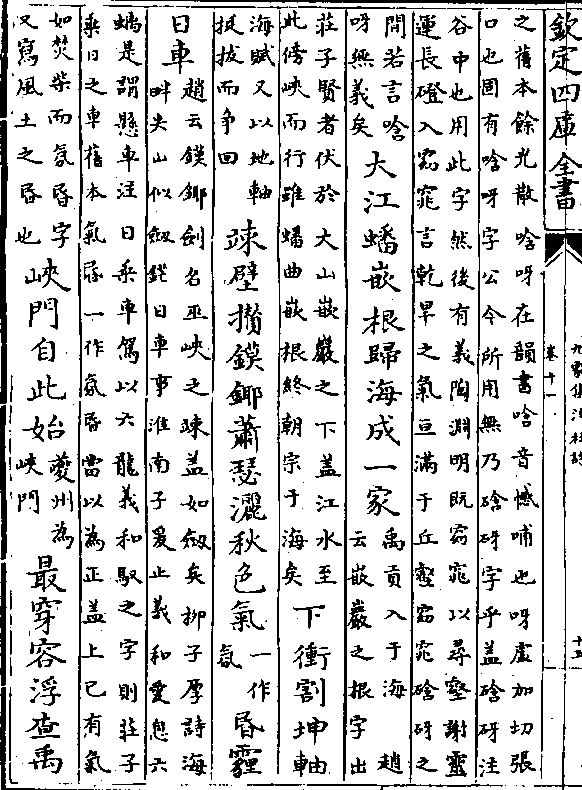 欽定四庫全書
九家集注杜詩
卷十一
十五
之舊本餘光散唅呀在韻書唅音憾哺也呀虛加切張
口也固有唅呀字公今所用無乃硆砑字乎蓋硆砑注
谷中也用此字然後有義陶淵明既窈窕以尋壑謝靈
運長磴入窈窕言乾旱之氣亘滿于丘壑窈窕硆砑之
間若言唅
呀無義矣
大江蟠嵌根歸海成一家
禹貢入于海 趙
云嵌巖之根字出
莊子賢者伏於大山嵌巖之下蓋江水至
此傍峽而行雖蟠曲嵌根終朝宗于海矣
下衝割坤軸
海賦又以地軸
挺拔而爭回
竦壁攢鏌鋣蕭瑟灑秋色氣
一作
氛
昏霾
日車
趙云鏌鋣劍名巫峽之竦蓋如劔矣柳子厚詩海
畔尖山似劔鋩日車事淮南子爰止羲和爰息六
螭是謂懸車注日乘車駕以六龍羲和馭之字則莊子
乘日之車舊本氣昏一作氛昏當以為正蓋上已有氣
如焚柴而氛昏字
又寫風土之昏也
峽門自此始
夔州為
峽門
最穿容浮查禹